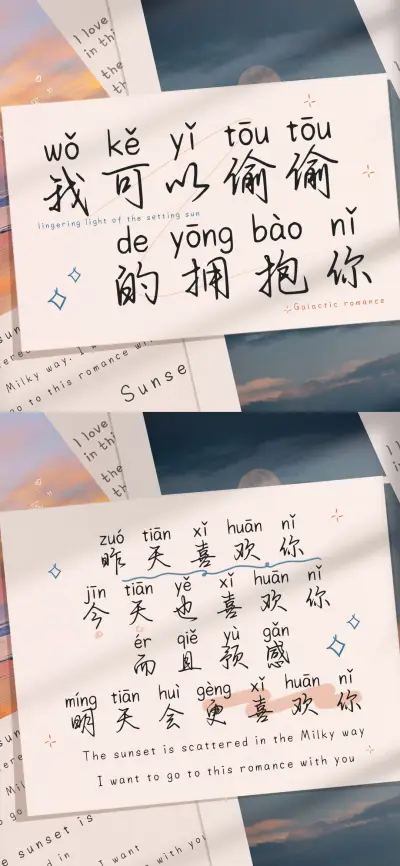 I love
in th
the
the
wǒ kě yǐ tōu tōu
我可以偷偷
lingering light of the setting sun
de yōng bào nǐ
的拥抱你
Galactic romance
sun
Milky way. I w
go to this romance wi
Sunse
I love
in thi
the
the
zuó tiān xǐ huān nǐ
昨天喜欢你
jīn tiān yě xǐ huān nǐ
今天也喜欢你
ér qiě yù gǎn
而且预感
míng tiān huì gèng xǐ huān nǐ
明天会更喜欢你
The sunset is scattered in the Milky way
I want to go to this romance with you
sun
Mil
go
e sunset is
ed in
I want
to this romance with you